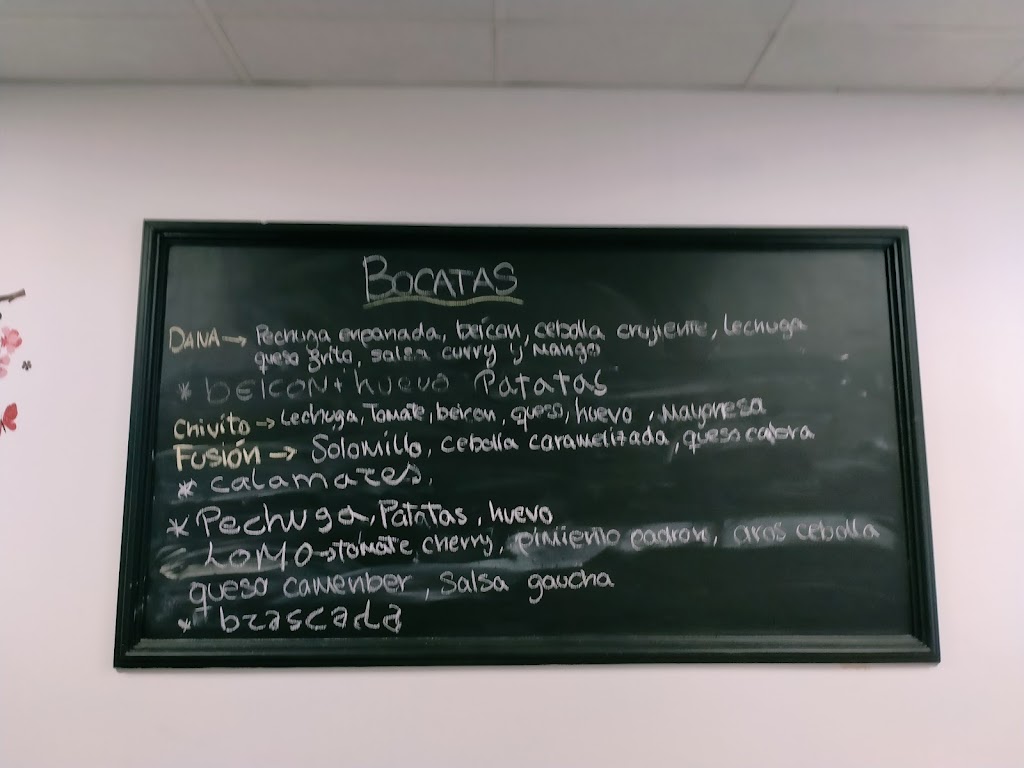 BOCATAS
DANA → Pechuga empanada, beicon, cebolla crujiente, Lechuga
queso frito, salsa curry y Mango
* beicon + huevo Patatas
Chivito → Lechuga, Tomate, beicon, queso, huevo, Mayonesa
FUSIÓN → Solomillo, cebolla caramelizada, queso cabra
* calamares.
* Pechuga, Patatas, huevo
LOMO → tomate cherry, pimiento padron, aros cebolla
queso camenber, salsa gaucha
* brascada